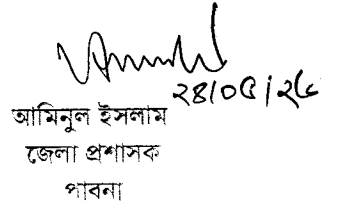 ২৪/০৫/২৬
আমিনুল ইসলাম
জেলা প্রশাসক
পাবনা